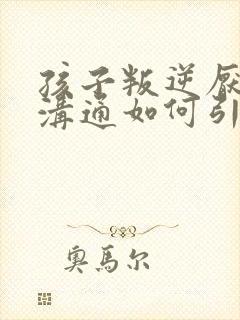 孩子叛逆厌
溝通如何引
奥馬尔